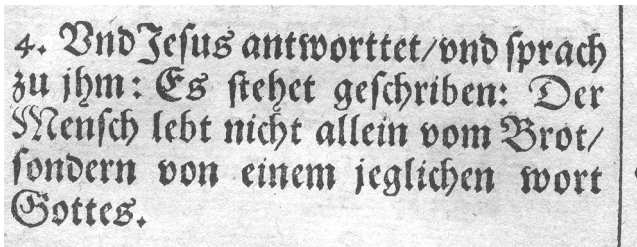 4. Vnd Jeſus antworttet/vnd ſprach
zu jhm: Es ſtehet geſchriben: Der
Menſch lebt nicht allein vom Brot/
ſondern von einem jeglichen wort
Gottes.